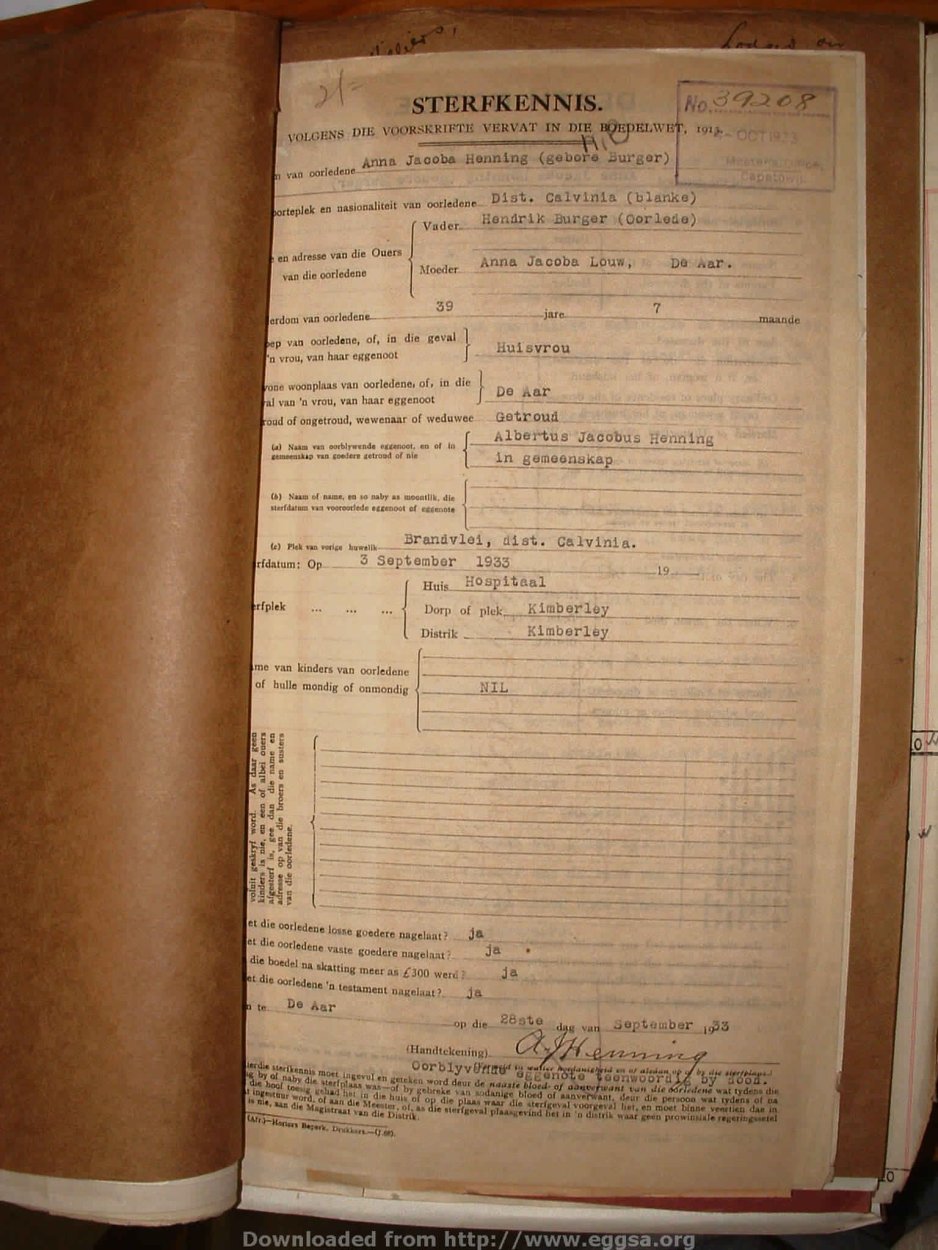 2/-
STERFKENNIS.
No. 39208
VOLGENS DIE VOORSKRIFTE VERVAT IN DIE BOEDELWET, 1913.
OCT 1933
Master's Office,
Capetown.
n van oorledene Anna Jacoba Henning (gebore Burger)
oorteplek en nasionaliteit van oorledene Dist. Calvinia (blanke)
Vader Hendrik Burger (Oorlede)
en adresse van die Ouers
van die oorledene
Moeder Anna Jacoba Louw, De Aar.
erdom van oorledene 39 jare 7 maande
oep van oorledene, of, in die geval
'n vrou, van haar eggenoot Huisvrou
rone woonplaas van oorledene, of, in die
al van 'n vrou, van haar eggenoot De Aar
roud of ongetroud, wewenaar of weduwee Getroud
(a) Naam van oorblywende eggenoot, en of in
gemeenskap van goedere getroud of nie
Albertus Jacobus Henning
in gemeenskap
(b) Naam of name, en so naby as moontlik, die
sterfdatum van vooroorlede eggenoot of eggenote
(c) Plek van vorige huwelik Brandvlei, dist. Calvinia.
rfdatum: Op 3 September 1933 19
Huis Hospitaal
erfplek ... ... ... Dorp of plek Kimberley
Distrik Kimberley
ame van kinders van oorledene
of hulle mondig of onmondig NIL
voluit geskryf word. As daar geen
kinders is nie, en een of albei ouers
afgesterf is, gee dan die name en
adresse op van die broers en susters
van die oorledene.
et die oorledene losse goedere nagelaat? ja
et die oorledene vaste goedere nagelaat? ja
die boedel na skatting meer as £300 werd? ja
et die oorledene 'n testament nagelaat? ja
n te De Aar
op die 28ste dag van September 1933
(Handtekening) A J Henning
Oorblywende eggenote teenwoordig by dood.
ierdie sterfkennis moet ingevul en geteken word deur de naaste bloed- of aanverwant van die oorledene wat tydens die
g by of naby die sterfplaas was—of by gebreke van sodanige bloed of aanverwant, deur die persoon wat tydens of na
die hoof toesig gehad het in die huis of op die plaas waar die sterfgeval voorgeval het, en moet binne veertien dae in
ingestuur word, of aan die Meester, of, as die sterfgeval plaasgevind het in 'n distrik waar geen provinsiale regeringssetel
is nie, aan die Magistraat van die Distrik.
(Afr.)—Honors Beperk, Drukkers.—(J.66).
Downloaded from http://www.eggsa.org